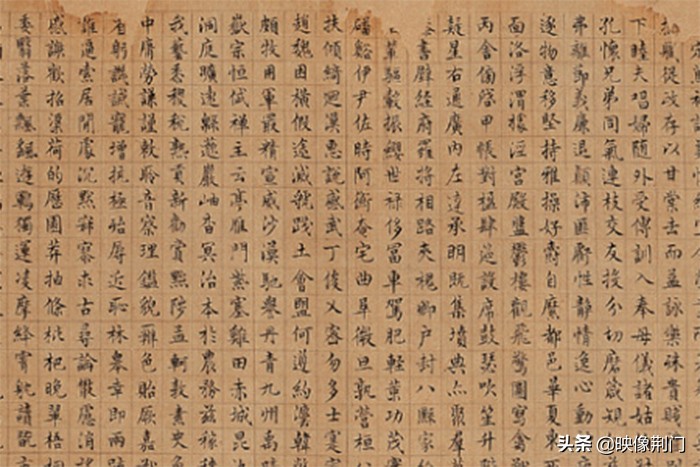 職從政存以甘棠去而益詠樂殊貴賤
下睦夫唱婦隨外受傅訓入奉母儀諸姑
孔懷兄弟同氣連枝交友投分切磨箴規
弗離節義廉退顛沛匪虧性靜情逸心動
逐物意移堅持雅操好爵自縻都邑華夏東
面洛浮渭據涇宮殿盤鬱樓觀飛驚圖寫禽獸
丙舍傍啓甲帳對楹肆筵設席鼓瑟吹笙升階
疑星右通廣內左達承明既集墳典亦聚群
書壁經府羅將相路夾槐卿戶封八縣家
輦驅轂振纓世祿侈富車駕肥輕策功茂
磻谿伊尹佐時阿衡奄宅曲阜微旦孰營桓
扶傾綺迴漢惠說感武丁俊乂密勿多士寔
趙魏困橫假途滅虢踐土會盟何遵約法韓
頗牧用軍最精宣威沙漠馳譽丹青九州禹
嶽宗恒岱禪主云亭雁門紫塞雞田赤城昆
洞庭曠遠緜邈巖岫杳冥治本於農務茲稼
我藝黍稷稅熟貢新勸賞黜陟孟軻敦素史魚
中庸勞謙謹敕聆音察理鑑貌辨色貽厥嘉
省躬譏誡寵增抗極殆辱近恥林皋幸即兩
誰逼索居閒處沉默寂寥求古尋論散慮消
慼謝歡招渠荷的歷園莽抽條枇杷晚翠梧桐
委翳落葉飄颻遊鵾獨運凌摩絳霄耽讀翫
头条 @映像荆门